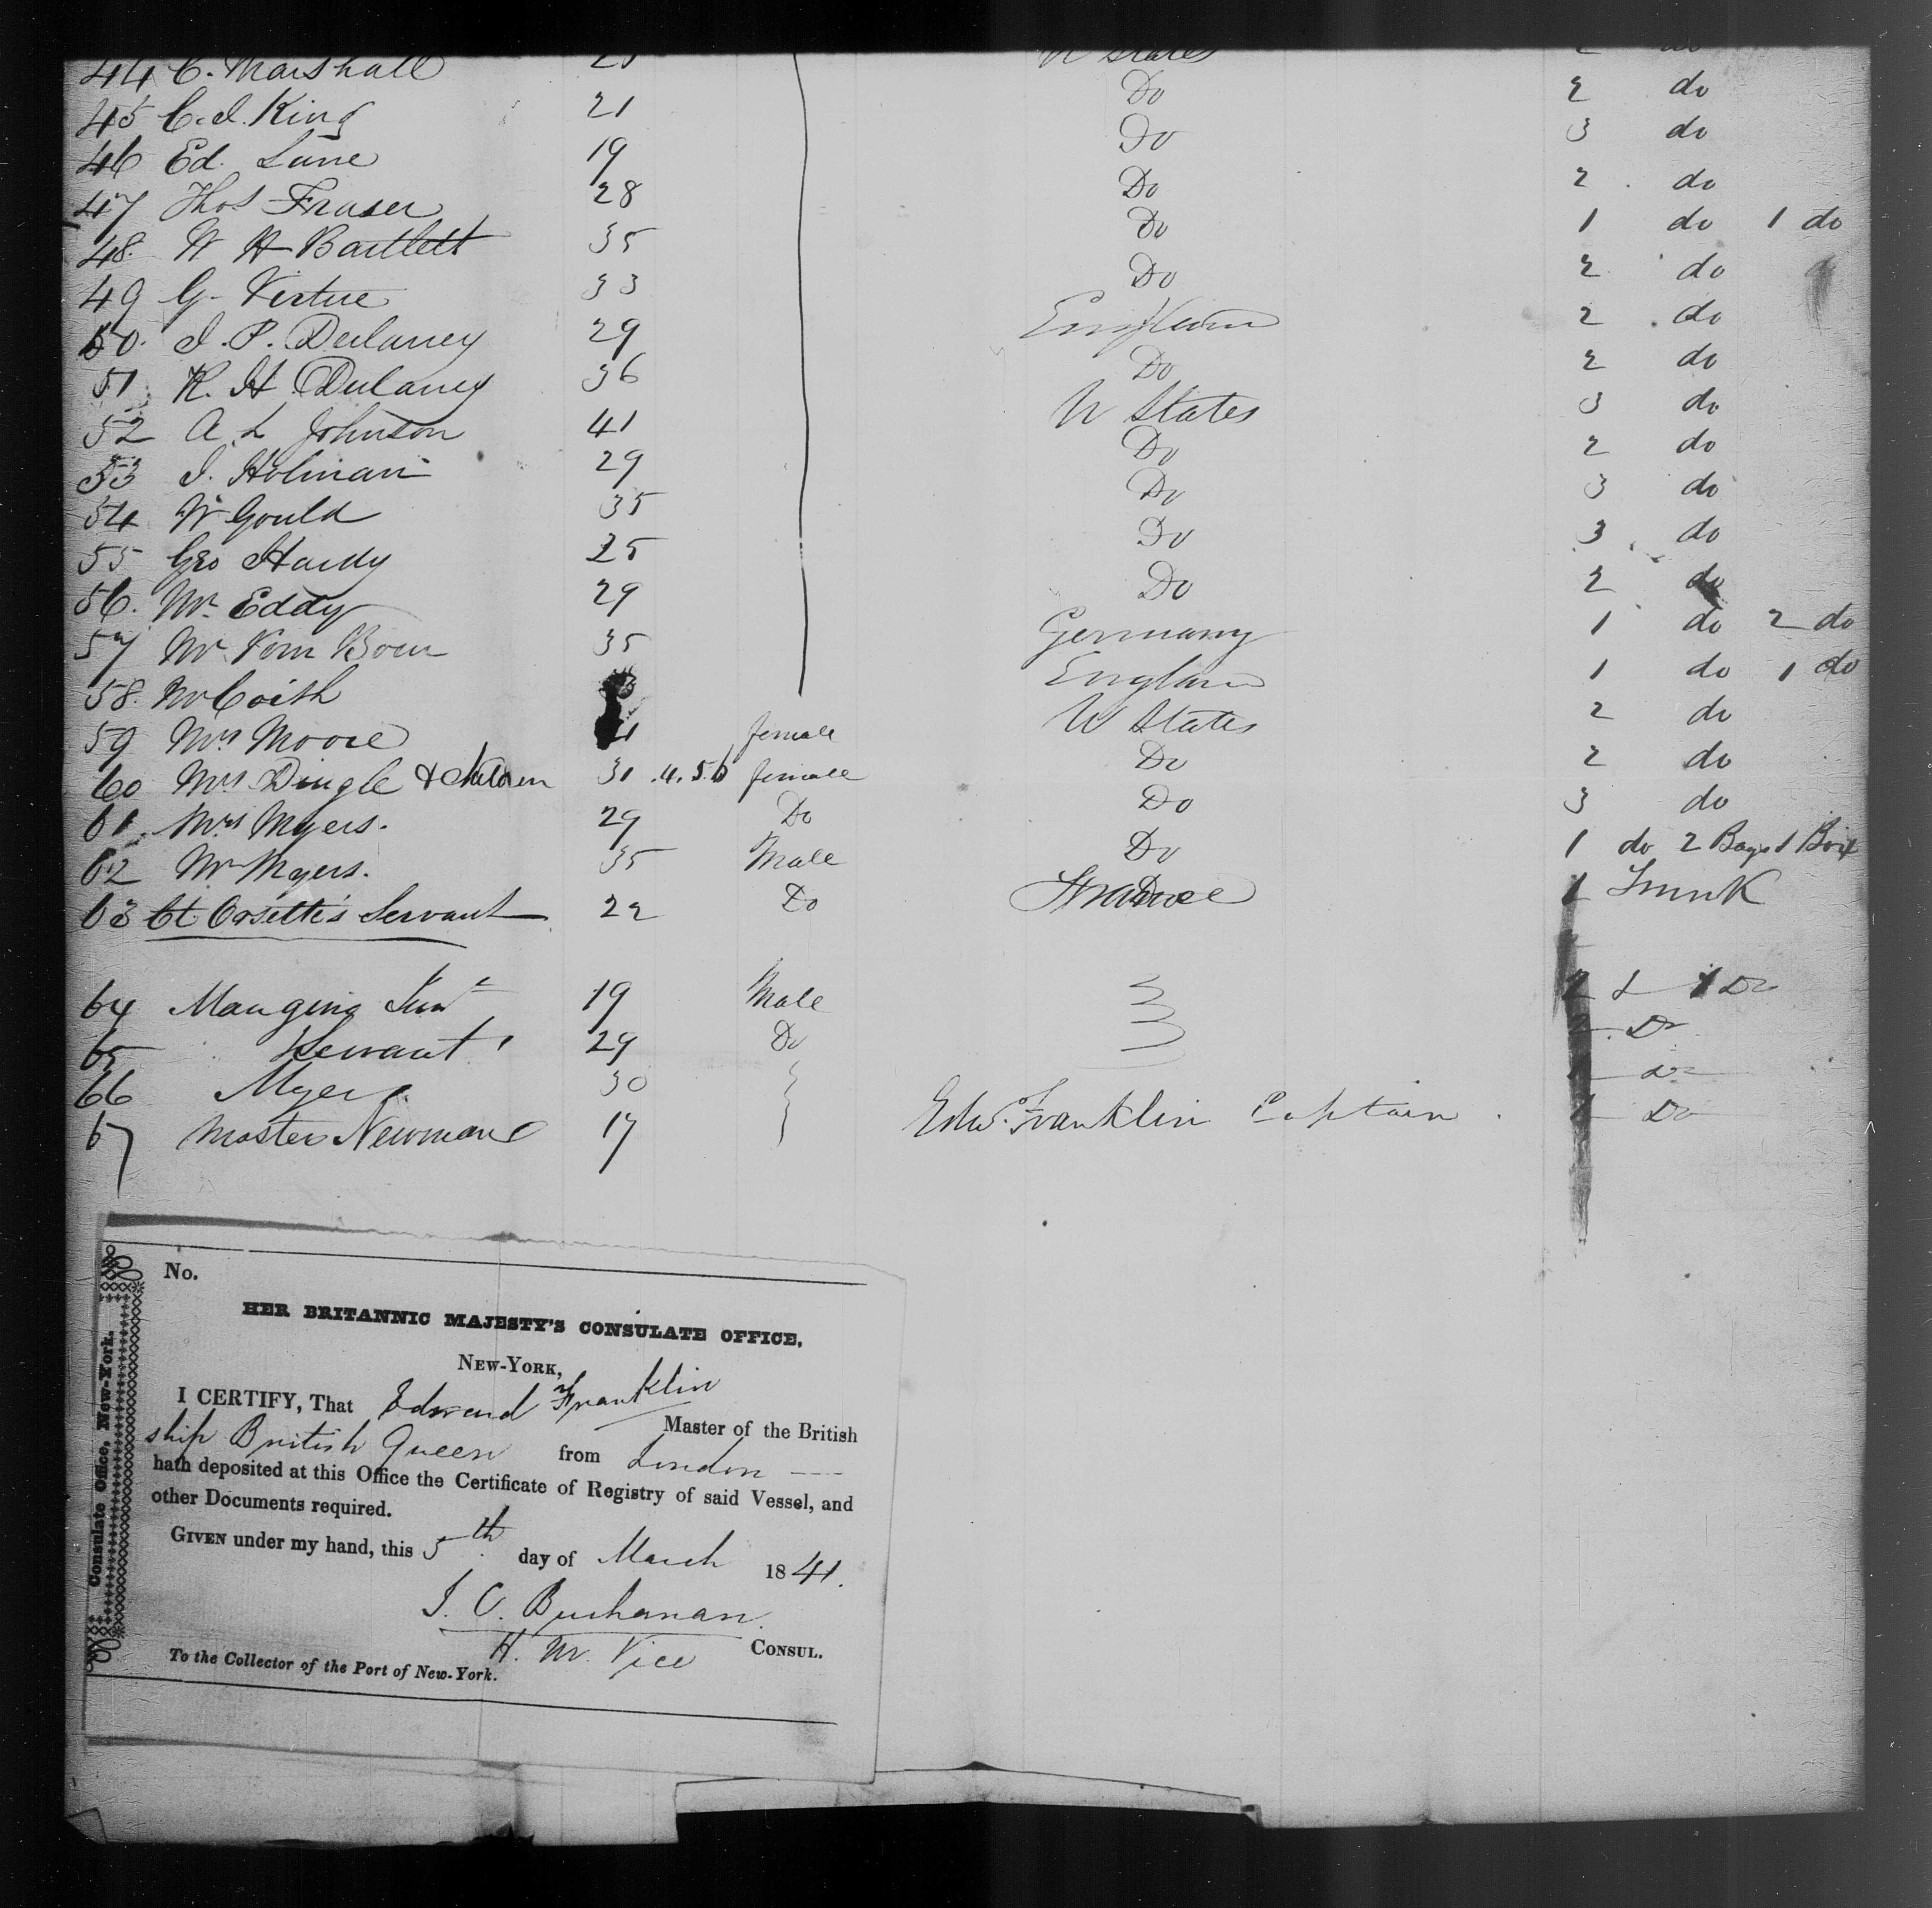 44 C. Marshall U States 2 do
45 C. I. King 21 Do 2 do
46 Ed. Lane 19 Do 3 do
47 Thos Fraser 28 Do 2 do
48. W H Bartlett 35 Do 1 do 1 do
49 G. Virtue 33 Do 2 do
50. I. P. Dulaney 29 England 2 do
51 R. H Dulaney 36 Do 2 do
52 A L Johnson 41 U States 3 do
53 I. Holman 29 Do 2 do
54 W Gould 35 Do 3 do
55 Geo Hardy 25 Do 3 do
56. Mr. Eddy 29 Do 2 do
57 Mr Vom Baur 35 Germany 1 do 2 do
58. Mr England 1 do 1 do
59 Mrs Moore female U States 2 do
60 Mrs Dingle & children 31 .4. 5. 6 female Do 2 do
61. Mrs Myers. 29 Do Do 3 do
62 Mr Myers. 35 Male Do 1 do 2 Bags 1 Box
63 Ct Orsetti's Servant 22 Do France 1 Trunk
64 19 Male
65 Servant 29 Do Do
66 Myer 30 Do
67 Master Newman 17 Edwd. Franklin Captain. Do
No.
HER BRITANNIC MAJESTY'S CONSULATE OFFICE,
NEW-YORK,
I CERTIFY, That Edward Franklin Master of the British
ship British Queen from London
hath deposited at this Office the Certificate of Registry of said Vessel, and
other Documents required.
GIVEN under my hand, this 5th day of March 1841.
J. C. Buchanan
H. M. Vice CONSUL.
To the Collector of the Port of New-York.
Consulate Office, New-York.